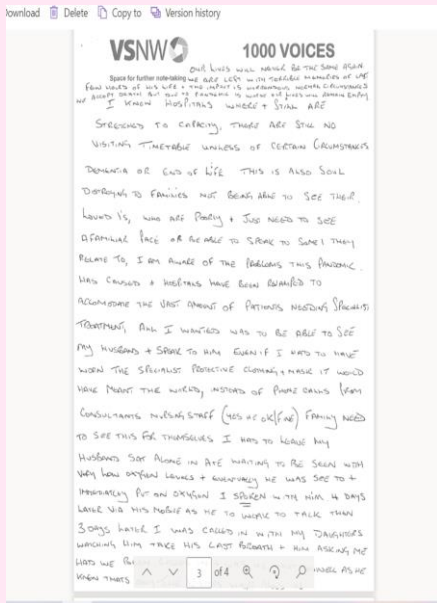 ownload Delete Copy to Version history
VSNW 1000 VOICES
OUR LIVES WILL NEVER BE THE SAME AGAIN.
Space for further note-taking WE ARE LEFT WITH TERRIBLE MEMORIES OF LAST
FEW HOURS OF HIS LIFE + THE IMPACT IS NORMAL CIRCUMSTANCES
WE ACCEPT DEATH BUT DUE TO PANDEMIC IS WORSE OUR LIVES WILL REMAIN EMPTY
I KNOW HOSPITALS WHERE + STILL ARE
STRETCHED TO CAPACITY, THERE ARE STILL NO
VISITING TIMETABLE UNLESS OF CERTAIN CIRCUMSTANCES
DEMENTIA OR END OF LIFE THIS IS ALSO SOUL
DISTROYING TO FAMILIES NOT BEING ABLE TO SEE THEIR
LOVED 1'S, WHO ARE POORLY + JUST NEED TO SEE
A FAMILIAR FACE OR BE ABLE TO SPEAK TO SOME1 THEY
RELATE TO, I AM AWARE OF THE PROBLEMS THIS PANDEMIC
HAS CAUSED + HOSPITALS HAVE BEEN REVAMPED TO
ACCOMODATE THE VAST AMOUNT OF PATIENTS NEEDING SPECIALIST
TREATMENT, ALL I WANTED WAS TO BE ABLE TO SEE
MY HUSBAND + SPEAK TO HIM EVEN IF I HAD TO HAVE
WORN THE SPECIALIST PROTECTIVE CLOTHING + MASK IT WOULD
HAVE MEANT THE WORLD, INSTEAD OF PHONE CALLS FROM
CONSULTANTS NURSING STAFF (YES HE OK/FINE) FAMILY NEED
TO SEE THIS FOR THEMSELVES I HAD TO LEAVE MY
HUSBAND SAT ALONE IN A+E WAITING TO BE SEEN WITH
VERY LOW OXYGEN LEVELS + EVENTUALLY HE WAS SEE TO +
IMMEDIATLEY PUT ON OXYGEN I SPOKEN WITH HIM 4 DAYS
LATER VIA HIS MOBILE AS HE TO WEAK TO TALK THEN
3 DAYS LATER I WAS CALLED IN WITH MY DAUGHTERS
WATCHING HIM TAKE HIS LAST BREATH + HIM ASKING ME
3 of 4
AS HE
KNEW THATS